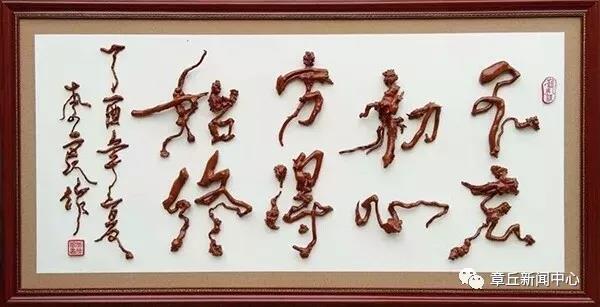 不忘
初心
方得
始终
丁酉年夏
李 作
章丘新闻中心